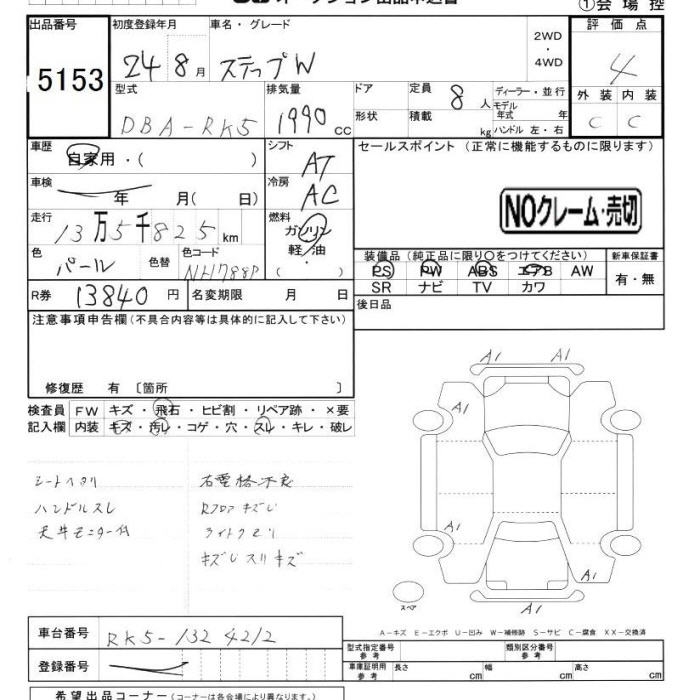 オークション出品申込書
①会場控
出品番号 5153
初度登録年月 24 8月
車名・グレード ステップW
2WD・4WD
評価点 4
外装 C 内装 C
型式 DBA-RK5
排気量 1990cc
ドア 形状
定員 8人
積載 kg
ディーラー・並行
モデル年式 年
ハンドル 左・右
車歴 自家用・( )
シフト AT
セールスポイント (正常に機能するものに限ります)
NOクレーム・売切
車検 年 月(日)
冷房 AC
走行 13万5千825km
燃料 ガソリン 軽油 ( )
色 パール 色替 色コード NH788P
装備品(純正品に限り○をつけてください)
PS PW ABS エアB AW
SR ナビ TV カワ
新車保証書 有・無
R券 13840円
名変期限 月 日
後日品
注意事項申告欄(不具合内容等は具体的に記入して下さい)
修復歴 有 〔箇所 〕
検査員記入欄
FW キズ・飛石・ヒビ割・リペア跡・×要
内装 キズ・汚レ・コゲ・穴・スレ・キレ・破レ
シートヘタリ
ハンドルスレ
天井モニター付
右電格不良
Rフロアキズし
ライトクモリ
キズしスリキズ
A1 A1
A1
A1
A1 A1
スペア
A-キズ E-エクボ U-凹み W-補修跡 S-サビ C-腐食 XX-交換済
車台番号 RK5-1324212
登録番号
型式指定番号 参考
類別区分番号 参考
車庫証明用 参考 長さ cm 幅 cm 高さ cm
希望出品コーナー(コーナーは各会場により異なります。)